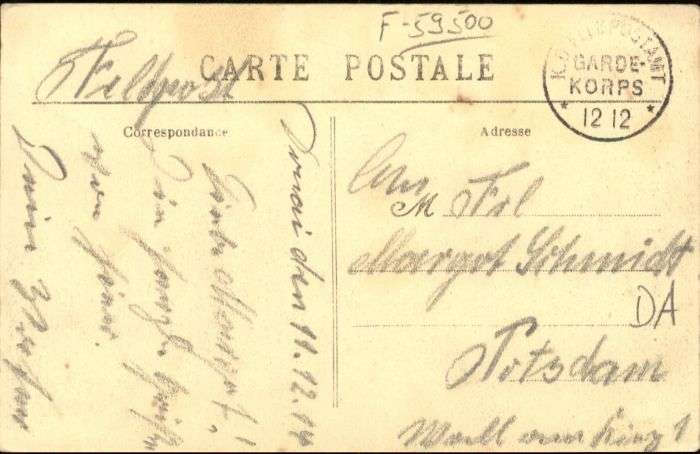 F-59500
Feldpost
CARTE POSTALE
K.D. FELDPOSTAMT
GARDE-
KORPS
* 12 12 *
Correspondance
Adresse
Douai den 11.12.14
Liebe Margot!
Dir herzl. Grüße
von hier.
Dein
An
M Frl
Margot Schmidt
DA
Potsdam
Wall am Kiez 1